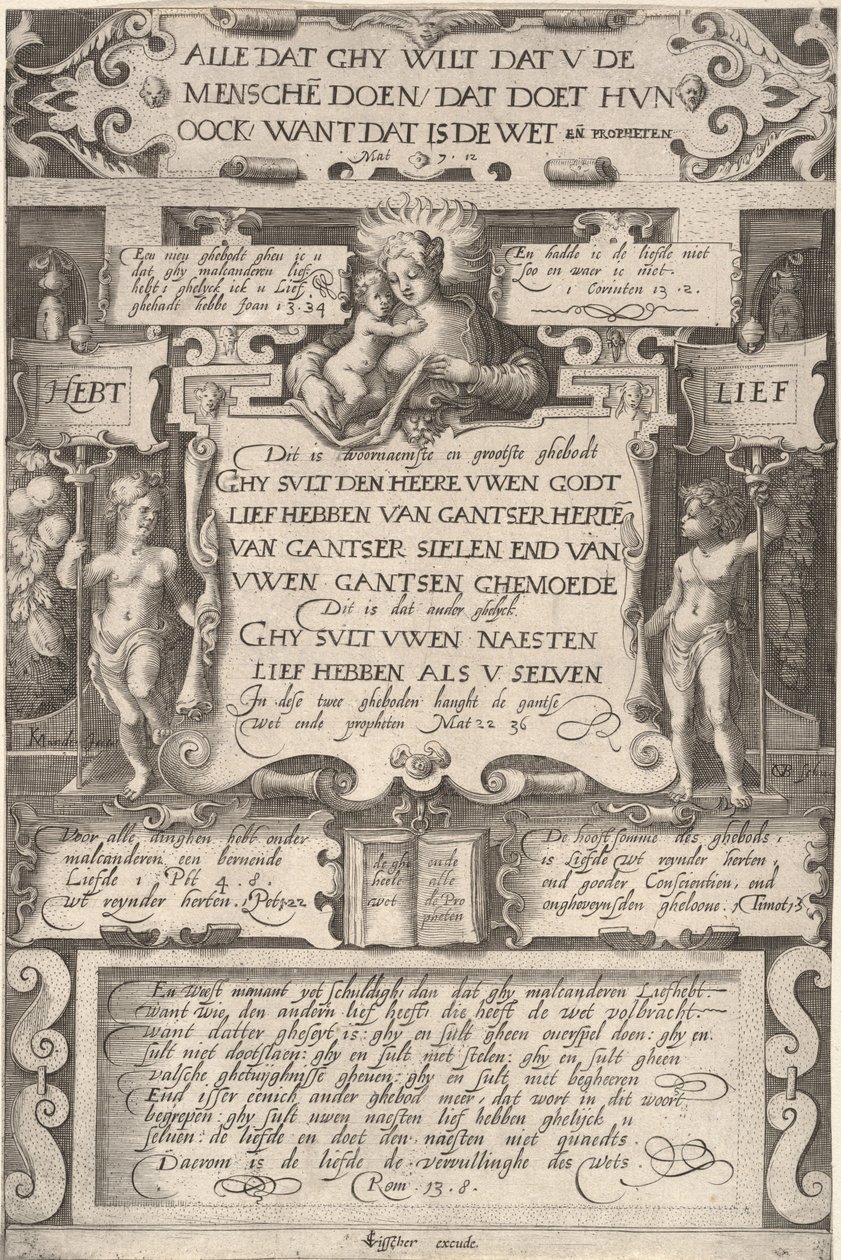 ALLE DAT GHY WILT DAT V DE
MENSCHẼ DOEN/ DAT DOET HVN
OOCK/ WANT DAT IS DE WET EÑ PROPHETEN
Mat 7. 12
Een nieu ghebodt gheu ic u
dat ghy malcanderen lief
hebt: ghelyck ick u Lief
ghehadt hebbe Joan 13.34
En hadde ic de liefde niet
soo en waer ic niet.
1 Corinten 13.2.
HEBT
LIEF
Dit is voornaemste en grootste ghebodt
GHY SVLT DEN HEERE VWEN GODT
LIEF HEBBEN VAN GANTSER HERTẼ
VAN GANTSER SIELEN END VAN
VWEN GANTSEN GHEMOEDE
Dit is dat ander ghelyck.
GHY SVLT VWEN NAESTEN
LIEF HEBBEN ALS V SELVEN
In dese twee gheboden hanght de gantse
Wet ende propheten Mat 22 36
KMandr
Voor alle dinghen hebt onder
malcanderen een bernende
Liefde 1 Pet 4.8.
wt reynder herten. 1 Pet 1.22
de ghe
heele
wet
ende
alle
de Pro
pheten
De hooft somme des ghebods,
is Liefde wt reynder herten,
end goeder Conscientien, end
ongheveynsden gheloove. 1 Timot 1 5
En weest niemant yet schuldigh, dan dat ghy malcanderen Liefhebt.
Want wie den andern lief heeft, die heeft de wet volbracht.
Want datter gheseyt is: ghy en sult gheen overspel doen: ghy en
sult niet dootslaen: ghy en sult niet stelen: ghy en sult gheen
valsche ghetuijghnisse gheven: ghy en sult niet begheeren
End isser eenich ander ghebod meer, dat wort in dit woort
begrepen: ghy sult uwen naesten lief hebben ghelijck u
selven: de liefde en doet den naesten niet quaedts.
Daerom is de liefde de vervullinghe des Wets.
Rom. 13.8.
CVisscher excude.